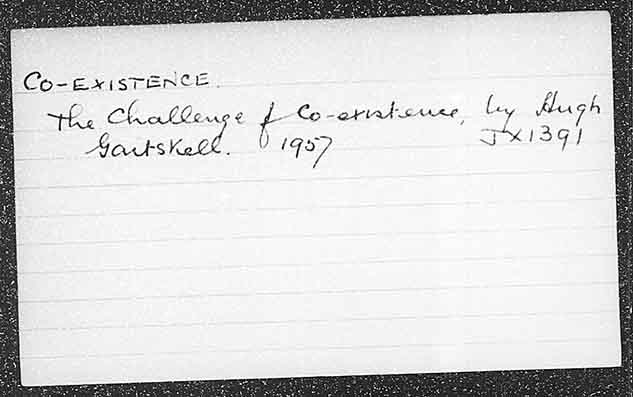 CO-EXISTENCE.
The Challenge of Co-existence, by Hugh
Gaitskell. 1957 JX1391